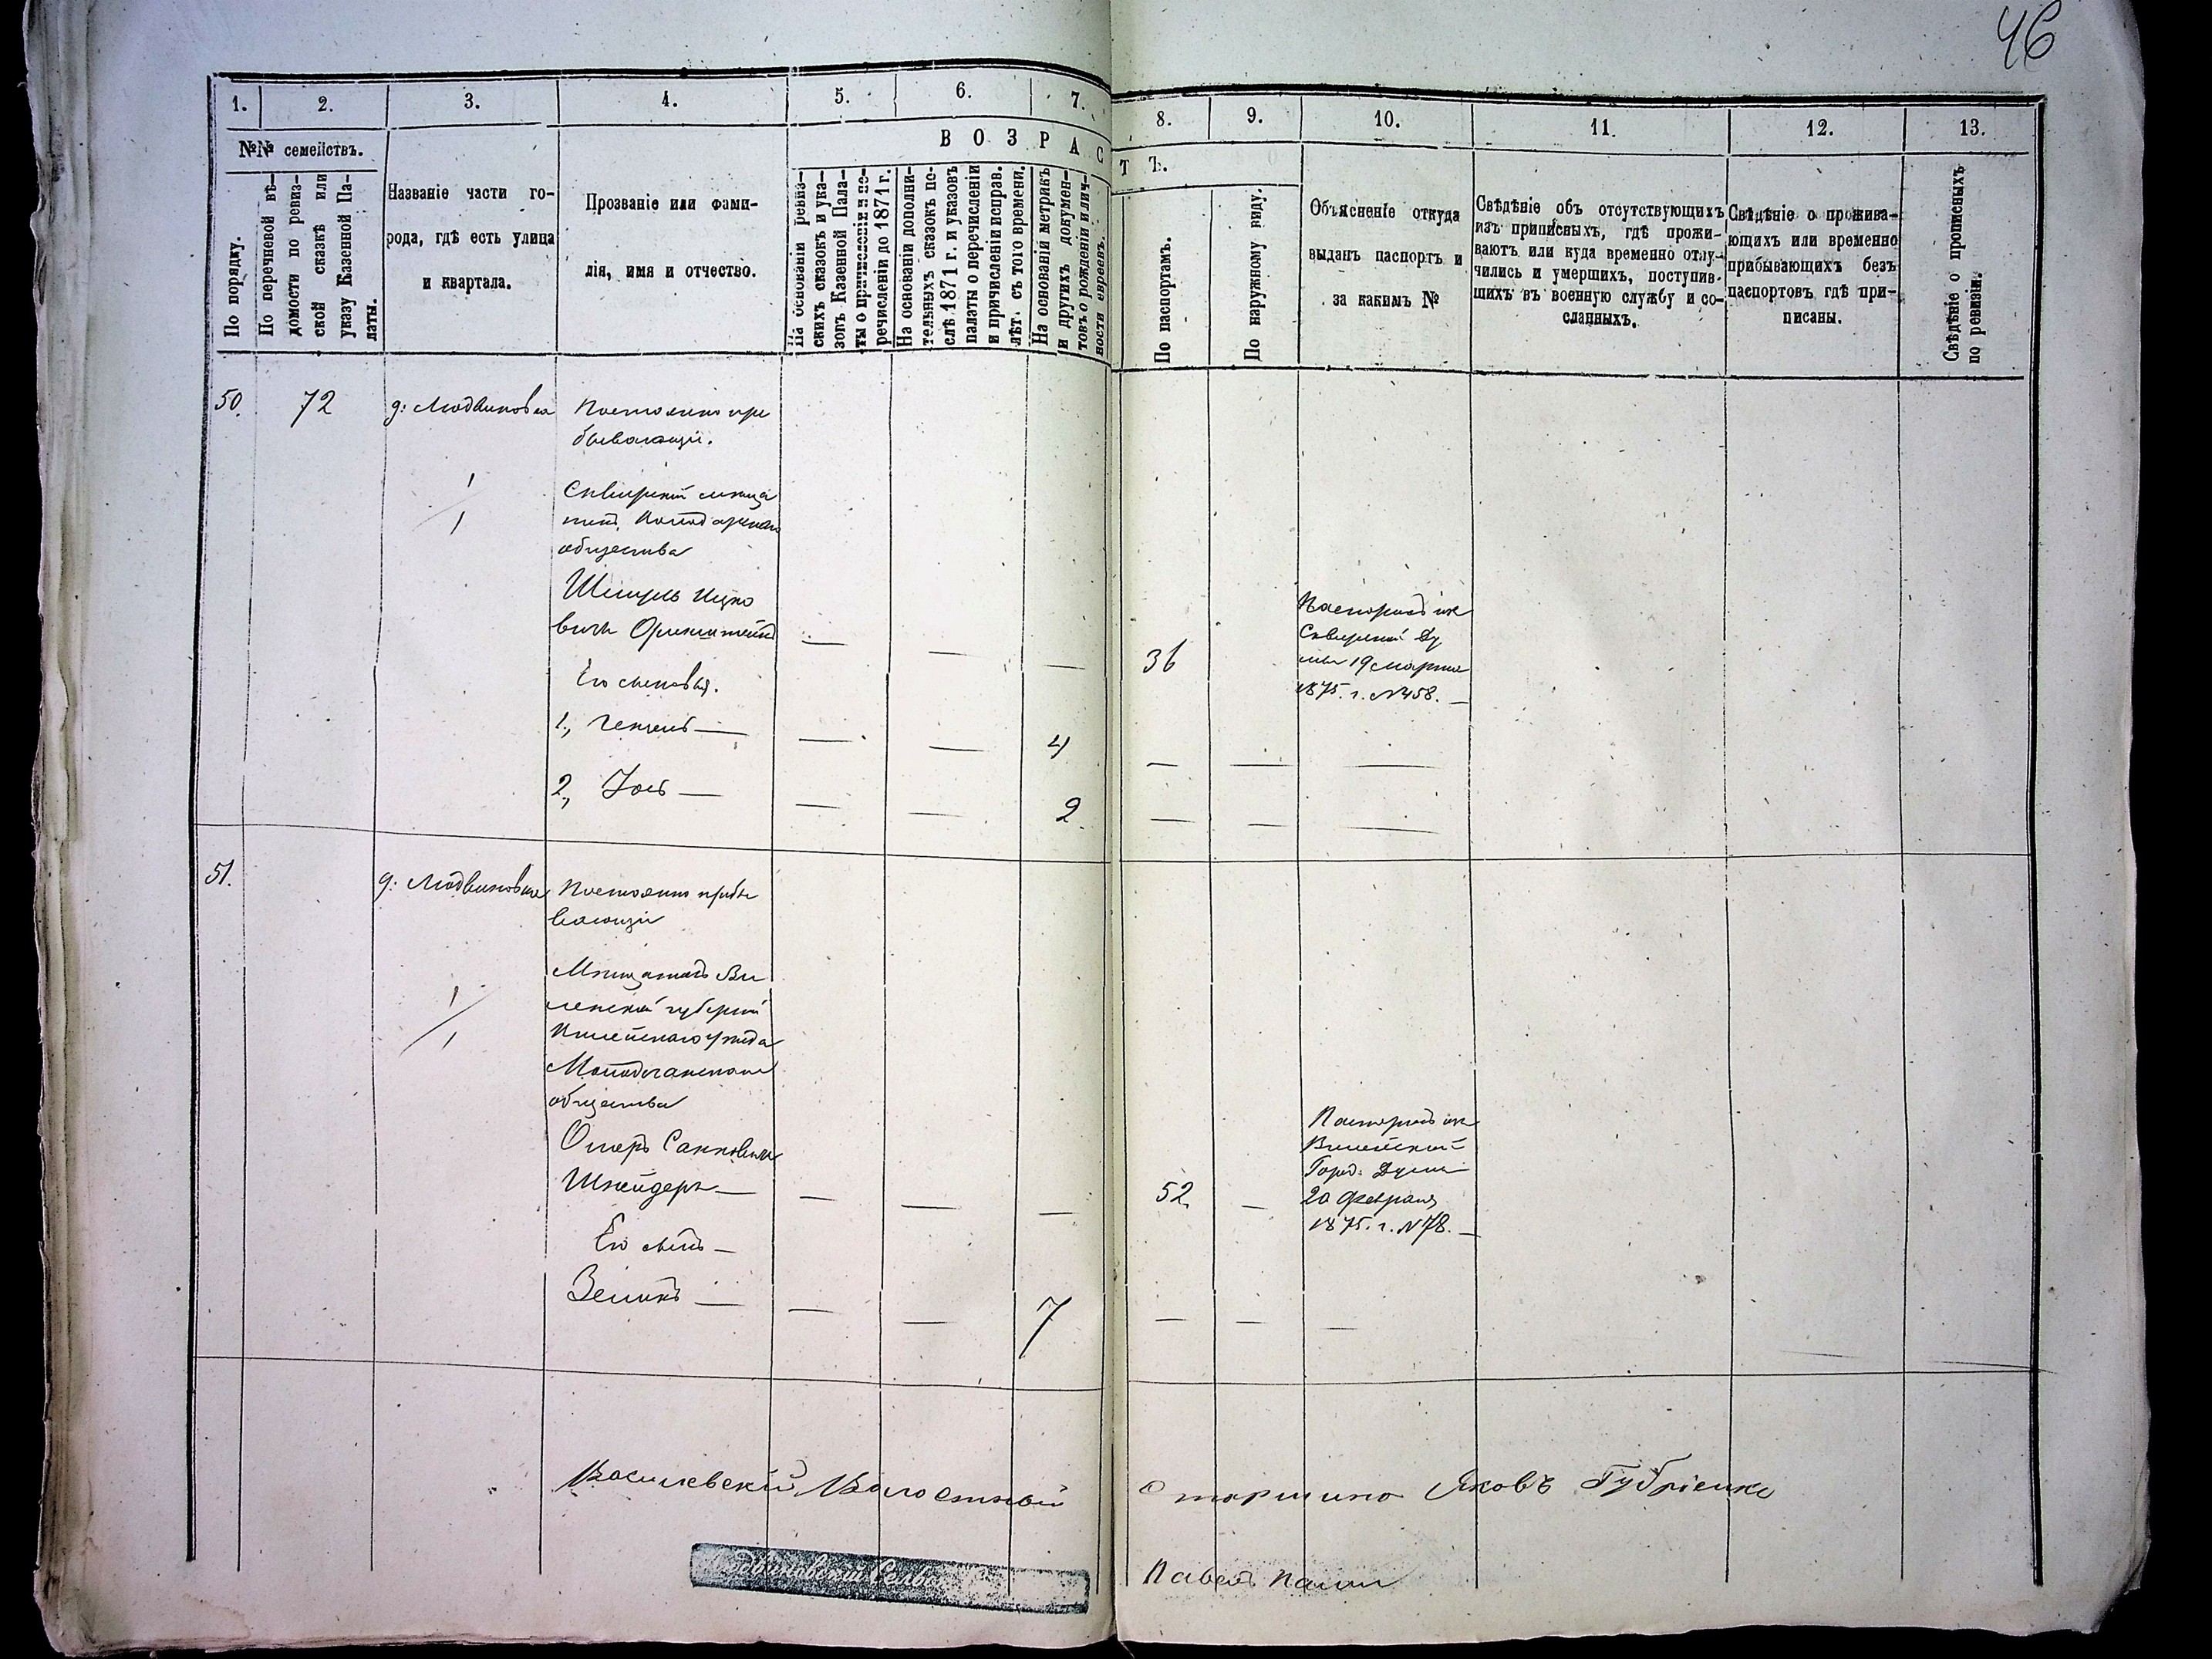 46
1.
2.
3.
4.
5.
6.
7.
8.
9.
10.
11.
12.
13.
№№ семействъ.
В О З Р А С
Т Ъ.
По порядку.
По перечневой вѣ-
домости по ревиз-
ской сказкѣ или
указу Казенной Па-
латы.
Названіе части го-
рода, гдѣ есть улица
и квартала.
Прозваніе или фами-
лія, имя и отчество.
На основаніи ревиз-
скихъ сказокъ и ука-
зовъ Казенной Пала-
ты о причисленіи и пе-
речисленіи до 1871 г.
На основаніи дополни-
тельныхъ сказокъ по-
слѣ 1871 г. и указовъ
палаты о перечисленіи
и причисленіи исправ.
лѣт. съ того времени.
На основаніи метрикъ
и другихъ докумен-
товъ о рожденіи и лич-
ности евреевъ.
По паспортамъ.
По наружному виду.
Объясненіе откуда
выданъ паспортъ и
за какимъ №
Свѣдѣніе объ отсутствующихъ
изъ приписныхъ, гдѣ прожи-
ваютъ или куда временно отлу-
чились и умершихъ, поступив-
шихъ въ военную службу и со-
сланныхъ.
Свѣдѣніе о прожива-
ющихъ или временно
прибывающихъ безъ
паспортовъ гдѣ при-
писаны.
Свѣдѣніе о прописныхъ
по ревизіи.
50.
72
д: Людвиновка
Постоянно пре
бывающіе.
1/1
Сквирскій мѣща
нинъ
общества
Шмуль Ицко
вичъ
36
Паспортъ изъ
Сквирской Ду
мы 19 марта
1875. г. №458.
Его сыновья.
1,
4
2,
2.
51.
д: Людвиновка
Постоянно пребы
вающіе
1/1
Мѣщанинъ Ви
ленской губерніи
Вилейскаго уѣзда
Молодечанскаго
общества
Шнейдеръ
52.
Паспортъ изъ
Вилейской
Город: Думы
20 Февраля
1875. г. №78.
Его сынъ
Зеликъ
7
Василевскій Волостный
Старшина Яковъ Губріенко
Людвиновскій Сельс
Павелъ